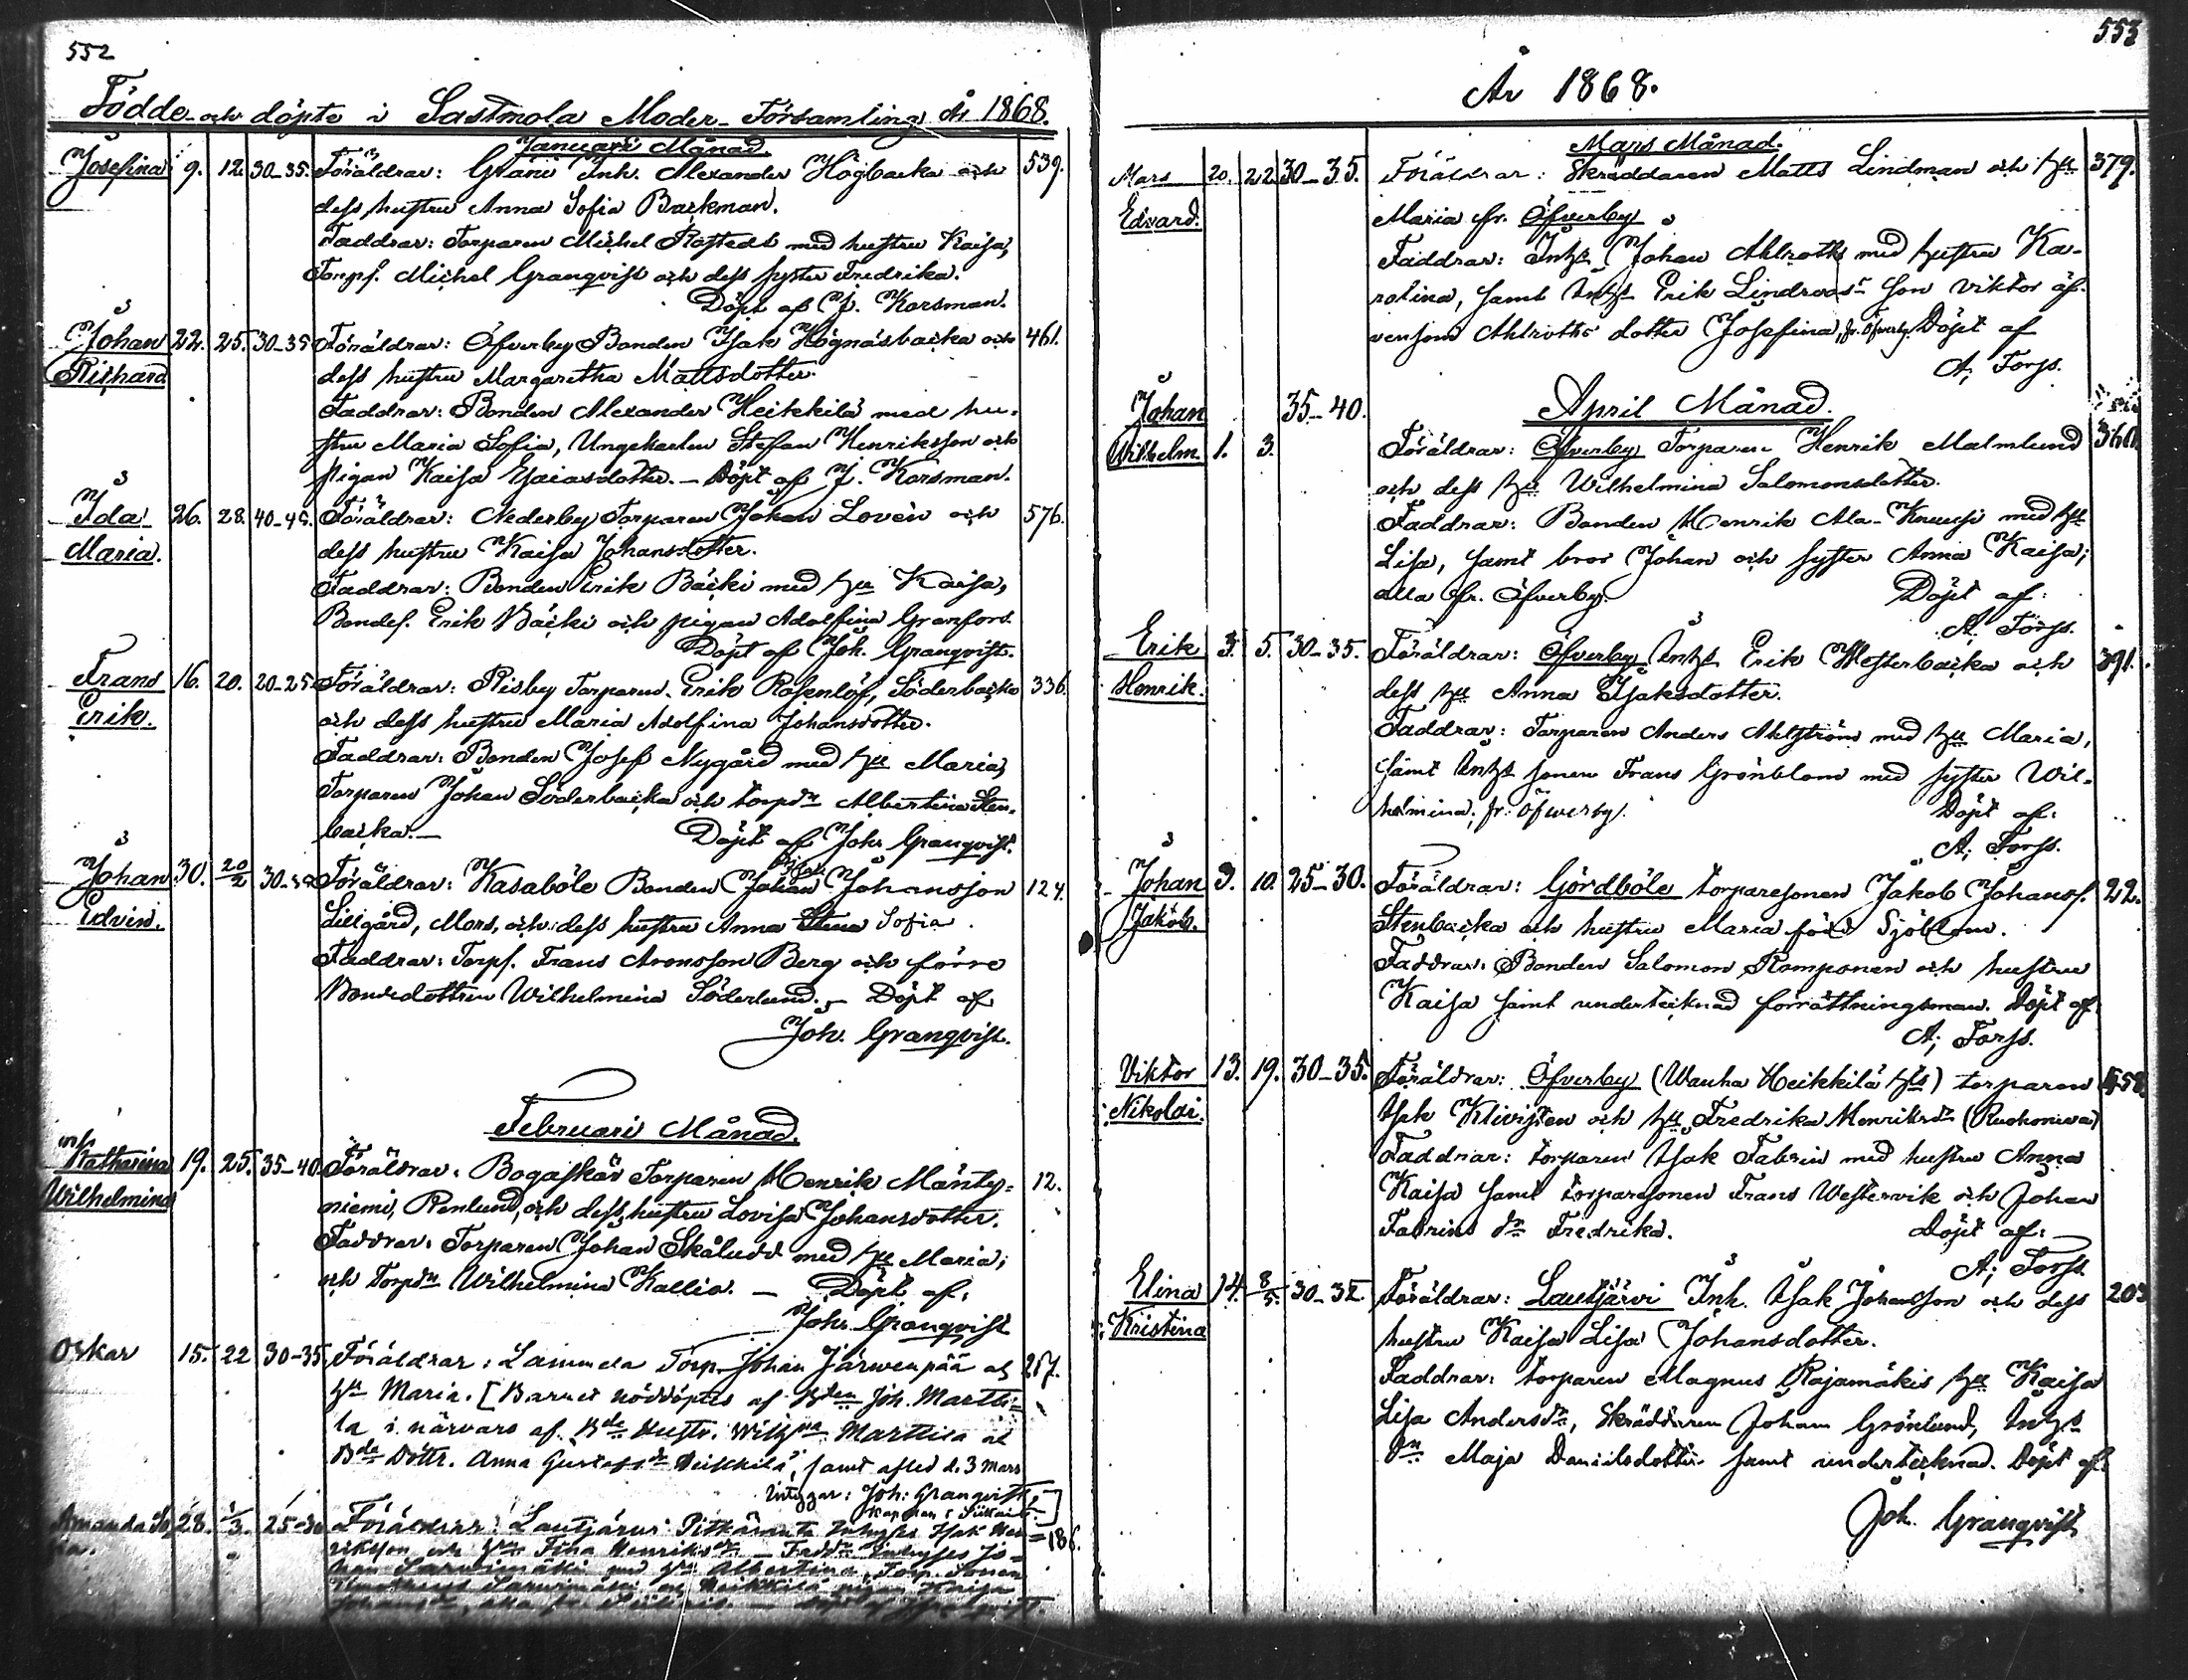 552
Födde och döpte i Sastmola Moder-Församling år 1868.
Januari Månad.
Josefina 9. 12. 30-35. Föräldrar: Inh. Alexander Högbacka och 539.
dess hustru Anna Sofia Backman.
Faddrar: Torparen Michel Rostedt med hustru Kaisa,
Torps. Michel Granqvist och dess syster Fredrika.
Döpt af J. Korsman.
Johan 22. 25. 30-35 Föräldrar: Öfverby Bonden Isak Högnäsbacka och 461.
Richard dess hustru Margaretha Mattsdotter.
Faddrar: Bonden Alexander Heikkilä med hu-
stru Maria Sofia, Ungekarlen Stefan Henriksson och
pigan Kaisa Esaiasdotter. — Döpt af J. Korsman.
Ida 26. 28. 40-45. Föräldrar: Nederby Torparen Johan Lovén och 576.
Maria. dess hustru Kaisa Johansdotter.
Faddrar: Bonden Erik Bäcki med hu Kaisa,
Bondes. Erik Bäcki och pigan Adolfina Granfors.
Döpt af Joh. Granqvist.
Frans 16. 20. 20-25 Föräldrar: Risby Torparen Erik Rosenlöf, Söderbacka 336.
Erik. och dess hustru Maria Adolfina Johansdotter.
Faddrar: Bonden Josef Nygård med hu Maria,
Torparen Johan Söderbacka och torpdr Albertina Sten-
backa. — Döpt af Joh. Granqvist.
Johan 30. 20/2 30- Föräldrar: Kasaböle Bonden Johan Johansson 124.
Edvin. Lillgård, Mors, och dess hustru Anna Stina Sofia.
Faddrar: Torps. Frans Aronsson Berg och förre
Bondedottren Wilhelmina Söderlund. — Döpt af
Joh. Granqvist.
Februari Månad.
Katharina 19. 25. 35-40. Föräldrar: Bogaskär Torparen Henrik Mänty- 12.
Wilhelmina niemi, Renlund, och dess hustru Lovisa Johansdotter.
Faddrar: Torparen Johan Skåludd med hu Maria,
och Torpdr Wilhelmina Kallio. — Döpt af:
Joh. Granqvist
Oskar 15. 22 30-35 Föräldrar: Lammela Torp. Johan Järwenpää o 257.
hu Maria. [Barnet nöddöptes af Bden Joh. Martti-
la i närvaro af Bde Hustr. Wilhna Marttila o
Bde Döttr. Anna Gustafsdr Heikkilä, samt afled d. 3 Mars
Intygar: Joh: Granqvist
Amanda So 28. 1/3. 25-30 Föräldrar: Lautjärvi Pitkäranta Inhyses Isak Hen- 186.
fia. riksson och hu Fina Henriksdr — Faddr. Inhyses Jo-
han med hu Albertina, Torp. Sonen
553
År 1868.
Mars Månad.
Mars 20. 22. 30-35. Föräldrar: Skräddaren Matts Lindman och hu 379.
Edvard. Maria fr. Öfverby
Faddrar: Inhs Johan Ahlroth med hustru Ka-
rolina, samt Inhs Erik Lindroos son Viktor äf-
vensom Ahlroths dotter Josefina, fr. Öfverby. Döpt af
A; Forss.
April Månad.
Johan 35-40.
Wilhelm. 1. 3. Föräldrar: Öfverby Torparen Henrik Malmlund 360.
och dess hu Wilhelmina Salomonsdotter.
Faddrar: Bonden Henrik Ala-Knuussi med hu
Lisa, samt bror Johan och syster Anna Kaisa,
alla fr. Öfverby. Döpt af:
A. Forss.
Erik 3. 5. 30-35. Föräldrar: Öfverby Inhs Erik Westerbacka och 391.
Henrik. dess hu Anna Isaksdotter.
Faddrar: Torparen Anders Ahlström med hu Maria,
samt Inhs sonen Frans Grönblom med syster Wil-
helmina, fr. Öfwerby. Döpt af:
A; Forss.
Johan 9. 10. 25-30. Föräldrar: Gördböle torparesonen Jakob Johanss. 22.
Jakob. Stenbacka och hustru Maria född Sjöblom.
Faddrar: Bonden Salomon Komponen och hustru
Kaisa samt undertecknad förrättningsman. Döpt af
A; Forss.
Viktor 13. 19. 30-35. Föräldrar: Öfverby (Wanha Heikkilä hs) torparen 458
Nikolai. Isak Klivisten och hu Fredrika Henriksdr (Ruohoniva)
Faddrar: torparen Isak Fabrin med hustru Anna
Kaisa samt torparesonen Frans Westervik och Johan
Fabrins dr Fredrika. Döpt af:
A; Forss
Elina 14. 8/5. 30-32. Föräldrar: Lautjärvi Inh. Isak Johansson och dess 203
Kristina hustru Kaisa Lisa Johansdotter.
Faddrar: torparen Magnus Rajamäkis hu Kaisa
Lisa Andersdr, Skräddaren Johan Grönlund, Inhs
dr Maja Danielsdotter samt undertecknad. Döpt af:
Joh. Granqvist